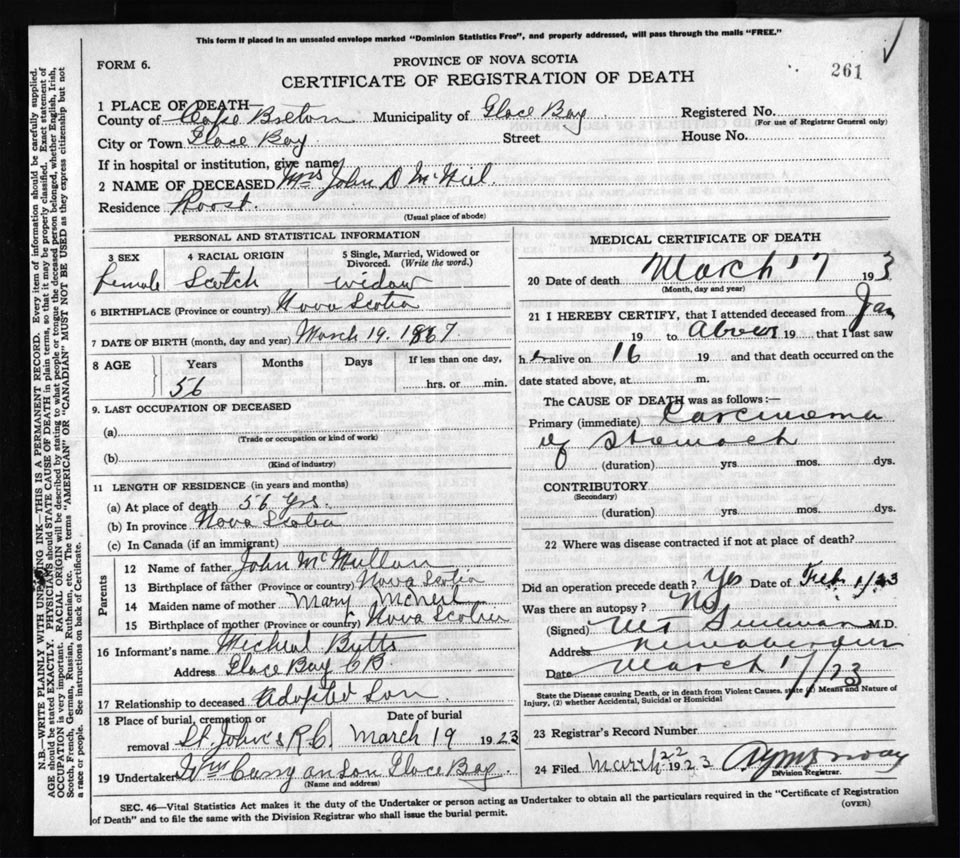 This form if placed in an unsealed envelope marked "Dominion Statistics Free", and properly addressed, will pass through the mails "FREE."
FORM 6.
PROVINCE OF NOVA SCOTIA
261
CERTIFICATE OF REGISTRATION OF DEATH
1 PLACE OF DEATH
County of Cape Breton Municipality of Glace Bay Registered No.
(For use of Registrar General only)
City or Town Glace Bay Street House No.
If in hospital or institution, give name
2 NAME OF DECEASED Mrs John D McNeil.
Residence Roost.
(Usual place of abode)
PERSONAL AND STATISTICAL INFORMATION
3 SEX 4 RACIAL ORIGIN 5 Single, Married, Widowed or Divorced. (Write the word.)
female Scotch widow
6 BIRTHPLACE (Province or country) Nova Scotia
7 DATE OF BIRTH (month, day and year) March 19. 1867
8 AGE Years Months Days If less than one day,
56 hrs. or min.
9. LAST OCCUPATION OF DECEASED
(a)
(Trade or occupation or kind of work)
(b)
(Kind of industry)
11 LENGTH OF RESIDENCE (in years and months)
(a) At place of death 56 Yrs.
(b) In province Nova Scotia
(c) In Canada (if an immigrant)
Parents
12 Name of father John McMullan
13 Birthplace of father (Province or country) Nova Scotia
14 Maiden name of mother Mary McNeil
15 Birthplace of mother (Province or country) Nova Scotia
16 Informant's name Micheal Butts
Address Glace Bay CB
17 Relationship to deceased Adopted Son
18 Place of burial, cremation or removal St John's R.C. Date of burial March 19 1923
19 Undertaker Wm Curry an Son Glace Bay.
(Name and address)
MEDICAL CERTIFICATE OF DEATH
20 Date of death March 17 193
(Month, day and year)
21 I HEREBY CERTIFY, that I attended deceased from Jan
19 to above 19 that I last saw
h er alive on 16 19 and that death occurred on the
date stated above, at m.
The CAUSE OF DEATH was as follows:—
Primary (immediate) Carcinoma
of Stomach
(duration) yrs. mos. dys.
CONTRIBUTORY
(Secondary)
(duration) yrs. mos. dys.
22 Where was disease contracted if not at place of death?
Did an operation precede death? Yes Date of Feb 1/23
Was there an autopsy? No
(Signed) M.D.
Address
Date March 17/23
State the Disease causing Death, or in death from Violent Causes, state (1) Means and Nature of
Injury, (2) whether Accidental, Suicidal or Homicidal
23 Registrar's Record Number
24 Filed March 22 1923
Division Registrar.
SEC. 46—Vital Statistics Act makes it the duty of the Undertaker or person acting as Undertaker to obtain all the particulars required in the "Certificate of Registration
of Death" and to file the same with the Division Registrar who shall issue the burial permit.
(OVER)
N.B.—WRITE PLAINLY WITH UNFADING INK—THIS IS A PERMANENT RECORD. Every item of information should be carefully supplied.
AGE should be stated EXACTLY. PHYSICIANS should STATE CAUSE OF DEATH in plain terms, so that it may be properly classified. Exact statement of
OCCUPATION is very important. RACIAL ORIGIN will be described by stating to what people or tongue the deceased person belonged, whether English, Irish,
Scotch, French, German, Russian, Ruthenian, etc. The terms "AMERICAN" OR "CANADIAN" MUST NOT BE USED as they express citizenship but not
a race or people. See instructions on back of Certificate.